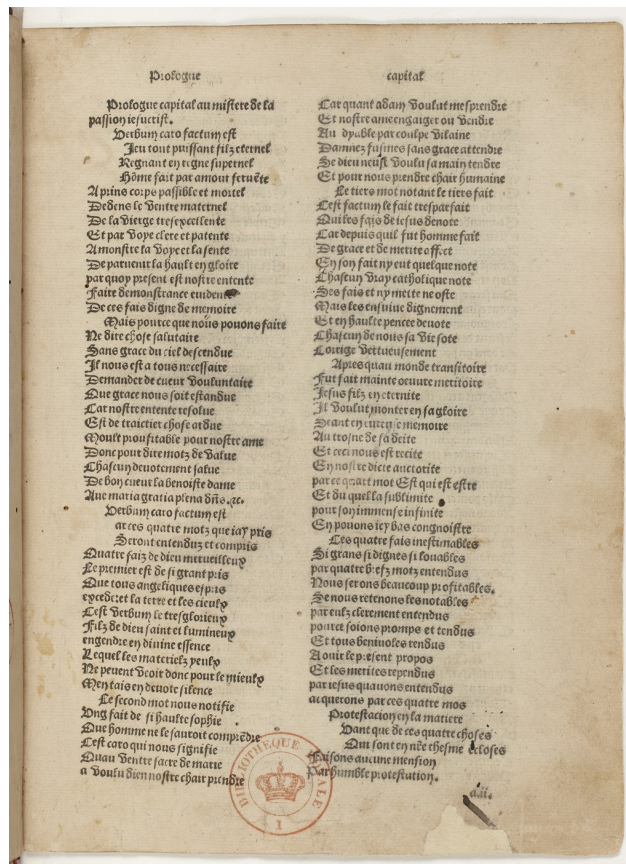 Prologue
capital
Prologue capital au mistere de la
passion iesucrist.
Verbum caro factum est
Jeu tout puissant filz eternel
Regnant en regne supernel
Hõme fait par amour feruẽte
A prins corps passible et mortel
Dedens le ventre maternel
De la vierge tresexcellente
Et par voye clere et patente
A monstre la voye et la sente
De paruenir la hault en gloire
par quoy present est nostre entente
Faire demonstrance euidente
De ces fais digne de memoire
Mais pource que nous pouons faire
Ne dire chose salutaire
Sans grace du ciel descendue
Il nous est a tous necessaire
Demander de cueur vouluntaire
Que grace nous soit estandue
Car nostre entente resolue
Est de traictier chose ardue
Moult proufitable pour nostre ame
Donc pour dire motz de value
Chascun deuotement salue
De bon cueur la benoiste dame
Aue maria gratia plena dñs .ꝛc.
Verbum caro factum est
a ces quatre motz que iay pris
Seront entenduz et compris
Quatre faiz de dieu merueilleux
Le premier est de si grant pris
Que tous angeliques espris
excedẽt la terre et les cieulx
Cest verbum le tresglorieux
Filz de dieu saint et lumineux
engendre en diuine essence
Lequel les materielz yeulx
Ne peuent veoir donc pour le mieulx
Men tais en deuote silence
Le second mot nous notifie
Vng fait de si haulte sophie
Que homme ne le sauroit comprẽdre
Cest caro qui nous signifie
Quau ventre sacre de marie
a voulu dieu nostre chair prendre
Car quant adam voulut mesprendre
Et nostre ame engaiger ou vendre
Au dyable par coulpe vilaine
Damnez fusmes sans grace attendre
Se dieu neust voulu sa main tendre
Et pour nous prendre chair humaine
Le tiers mot notant le tiers fait
Cest factum le fait tresparfait
Qui les fais de iesus denote
Car depuis quil fut homme fait
De grace et de merite effect
En son fait ny eut quelque note
Chascun vray catholique note
Ses fais et ny mette ne oste
Mais les ensuiue dignement
Et en haulte pencee deuote
Chascun de nous sa vie sote
Corrige vertueusement
Apres quau monde transitoire
Fut fait mainte oeuure meritoire
Jesus filz en eternite
Il voulut monter en sa gloire
Seant en memoire
Au trosne de sa deite
Et ceci nous est recite
En nostre dicte auctorite
par ce quart mot Est qui est estre
Et du quel la sublimite
pour son immense infinite
En pouons icy bas congnoistre
Ces quatre fais inestimables
Si grans si dignes si louables
par quatre brefz motz entendus
Nous seront beaucoup profitables.
Se nous retenons les notables
par eulx clerement entendus
pource soions promps et tendus
Et tous beniuoles rendus
A ouir le present propos
Et les merites rependus
par iesus quauons entendus
acquerons par ces quatre mos
Protestacion en la matiere
Vant que de ces quatre choses
Qui sont en nře thesme encloses
Faisons aucune mension
Par humble protestation.
a.ii.
BIBLIOTHEQUE ROYALE
I